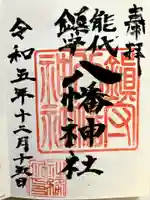 奉拝
能代
鎮守
八幡神社
令和五年十二月十五日